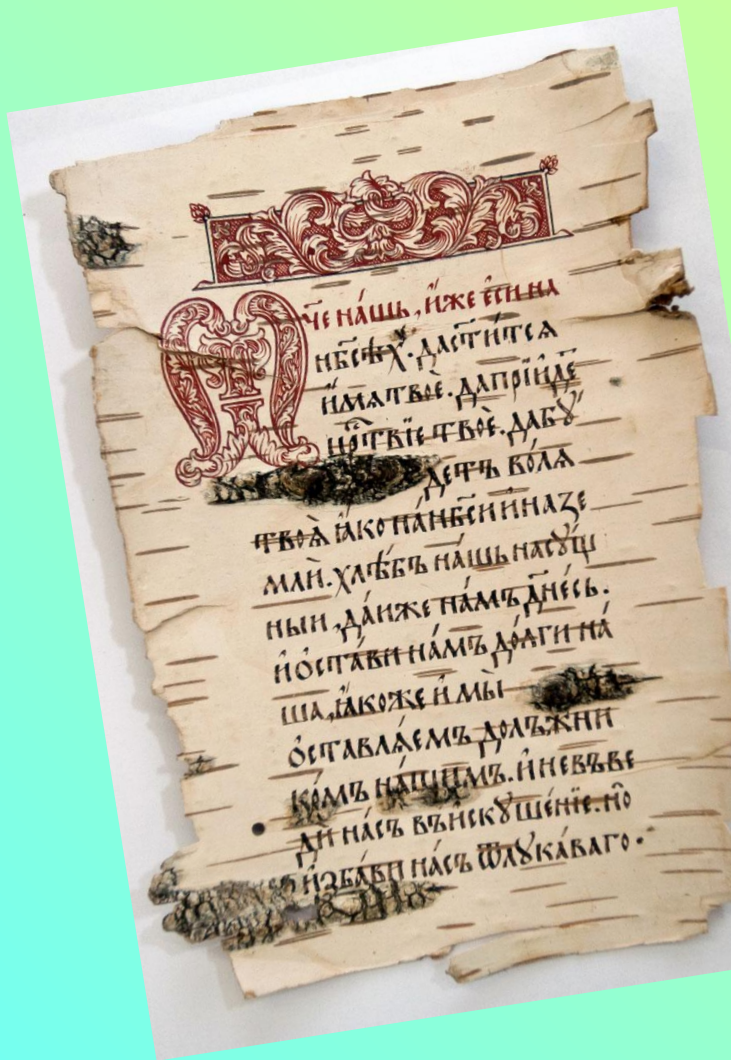 Ѿч҃е на́шь, и́же є҆сѝ на
нб҃сѣ́х. да с҃ти́тсѧ
и҆́мѧ твоѐ. да прїи́де
ц҃рⷭ҇твїе твоѐ. да бꙋ́
детъ во́лѧ
твоѧ̀ ꙗ҆́ко на нб҃сѝ и҆ на зе
млѝ. хлѣ́бъ на́шь насꙋ́щ
ныи, да́иже на́мъ дн҃е́сь.
и҆ ѻ҆ста́ви на́мъ до́лги на́
ша, ꙗ҆́коже и҆ мы̀
ѻ҆ставлѧ́емъ долъжни
ко́мъ на́шимъ. и҆ не въве
ди на́съ въ и҆скꙋше́нїе. но̀
и҆зба́ви на́съ ѿ лꙋка́ваго.